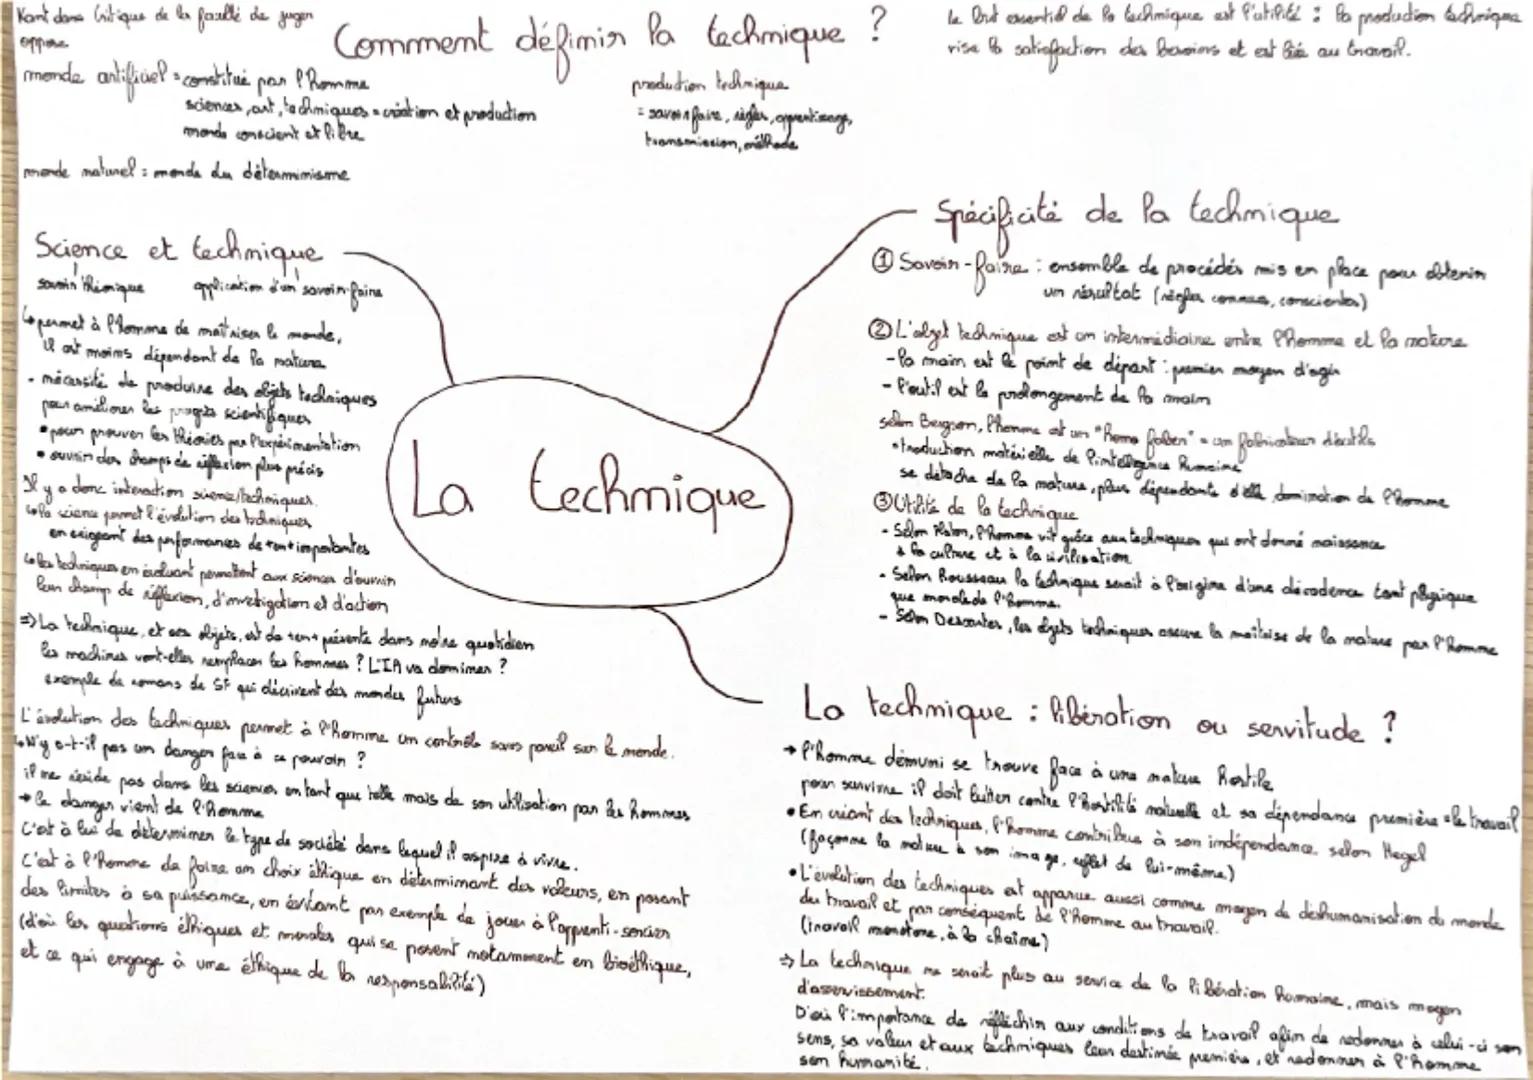 Kant dans Critique de la faculté de juger
oppose
monde artificiel = constitué par l'homme
sciences, art, techniques = création et production
monde conscient et libre
monde naturel : monde du déterminisme
Comment définir la technique ?
production technique
= savoir faire, règles, apprentissage,
transmission, méthode
Le but essentiel de la technique est l'utilité : la production technique
vise la satisfaction des besoins et est liée au travail.
Science et technique
savoin théorique application d'un savoir-faire
↳ permet à l'homme de maîtriser le monde,
il est moins dépendant de la nature
- nécessité de produire des objets techniques
pour améliorer les progrès scientifiques
• pour prouver les théories par l'expérimentation
• ouvrir des champs de réflexion plus précis
Il y a donc interaction science/techniques.
↳ la science permet l'évolution des techniques
en exigeant des performances de + en + importantes
↳ les techniques en évoluant permettent aux sciences d'ouvrir
leur champ de réflexion, d'investigation et d'action
=> La technique, et ses objets, est de + en + présente dans notre quotidien
les machines vont-elles remplacer les hommes ? L'IA va dominer ?
exemple de romans de SF qui décrivent des mondes futurs
L'évolution des techniques permet à l'homme un contrôle sans pareil sur le monde.
↳ N'y a-t-il pas un danger face à ce pouvoir ?
il ne réside pas dans les sciences en tant que telle mais de son utilisation par les hommes
→ le danger vient de l'homme
C'est à lui de déterminer le type de société dans lequel il aspire à vivre.
C'est à l'homme de faire un choix éthique en déterminant des valeurs, en posant
des limites à sa puissance, en évitant par exemple de jouer à l'apprenti-sorcier
(d'où les questions éthiques et morales qui se posent notamment en bioéthique,
et ce qui engage à une éthique de la responsabilité)
La technique
Spécificité de la technique
① Savoir-faire : ensemble de procédés mis en place pour obtenir
un résultat (règles connues, conscientes)
② L'objet technique est un intermédiaire entre l'homme et la nature
- la main est le point de départ : premier moyen d'agir
- l'outil est le prolongement de la main
selon Bergson, l'homme est un "homo faber" = un fabricateur d'outils
• traduction matérielle de l'intelligence humaine
se détache de la nature, plus dépendante d'elle, domination de l'homme
③ Utilité de la technique
- Selon Platon, l'homme vit grâce aux techniques qui ont donné naissance
à la culture et à la civilisation
- Selon Rousseau la technique serait à l'origine d'une décadence tant physique
que morale de l'homme.
- Selon Descartes, les objets techniques assure la maîtrise de la nature par l'homme
La technique : libération ou servitude ?
→ l'homme démuni se trouve face à une nature hostile
pour survivre il doit lutter contre l'hostilité naturelle et sa dépendance première = le travail
• En créant des techniques, l'homme contribue à son indépendance selon Hegel
(façonne la nature à son image, reflet de lui-même)
• L'évolution des techniques est apparue aussi comme moyen de déshumanisation du monde
du travail et par conséquent de l'homme au travail.
(travail monotone, à la chaîne)
=> La technique ne serait plus au service de la libération humaine, mais moyen
d'asservissement.
D'où l'importance de réfléchir aux conditions de travail afin de redonner à celui-ci son
sens, sa valeur et aux techniques leur destinée première, et redonner à l'homme
son humanité.